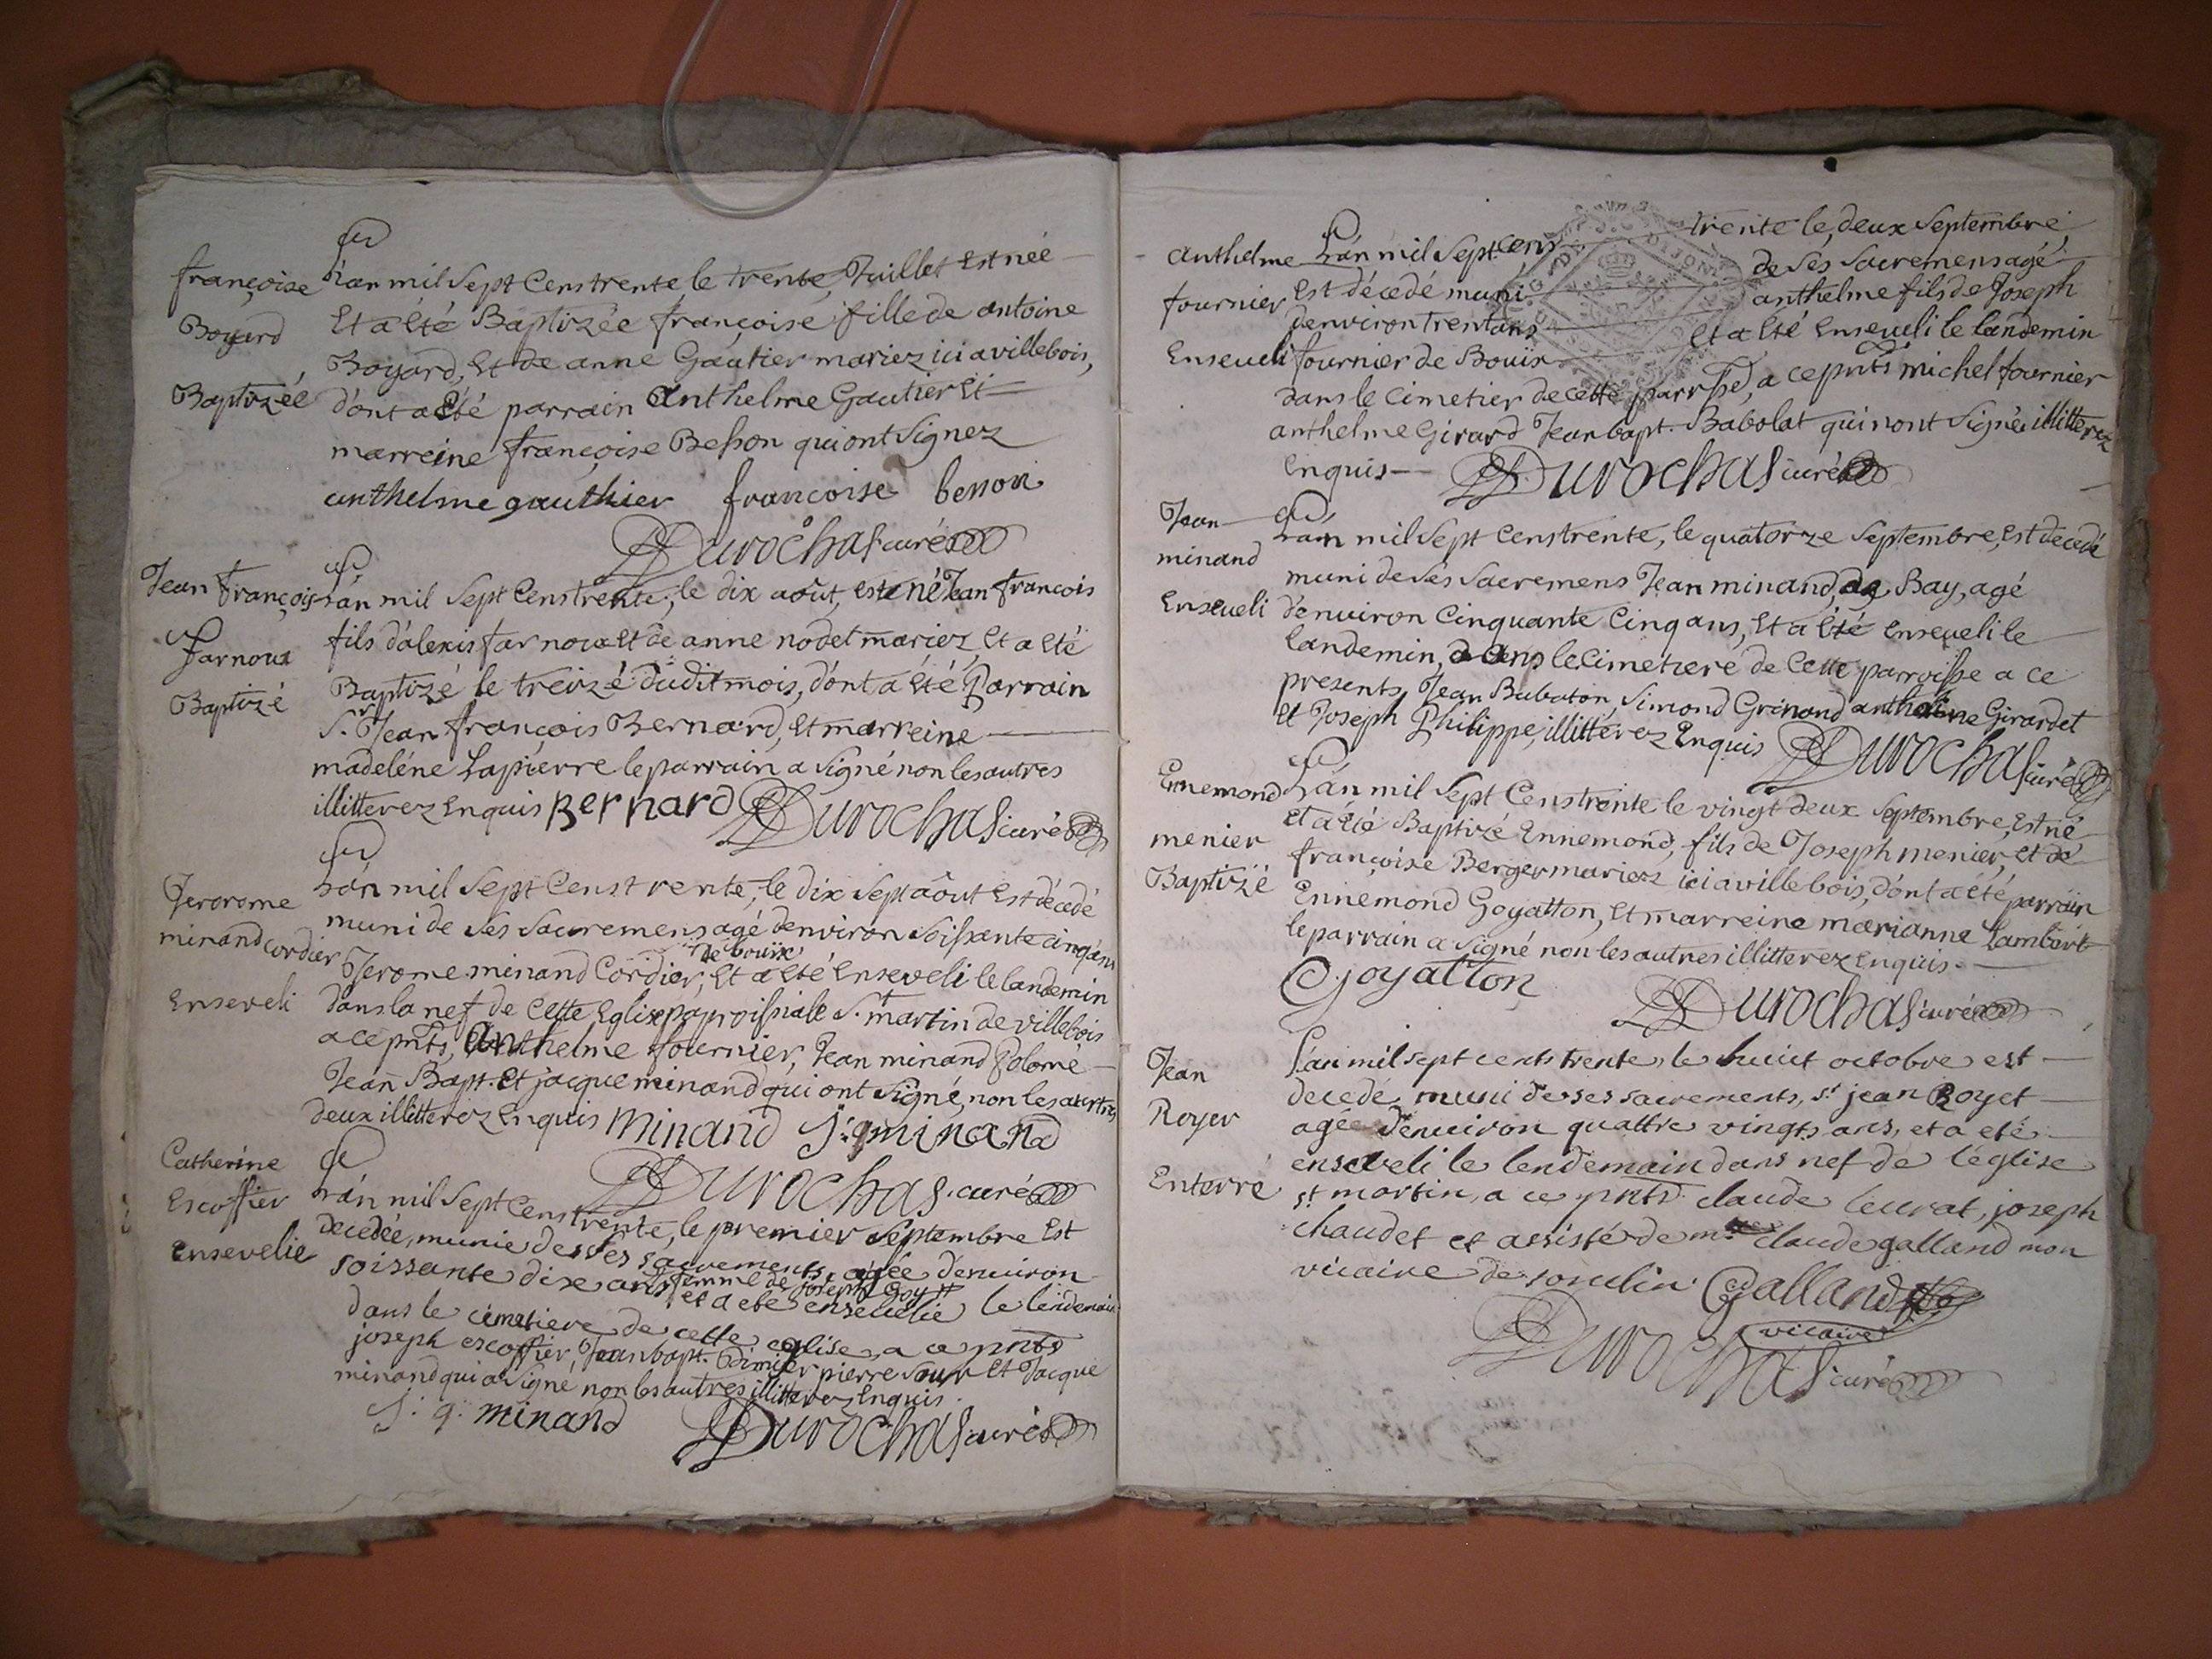 françoise
Boyard
Baptizée
L'an mil Sept Cens trente le trente Juillet Est née
Et a Eté Baptizée françoise fille de antoine
Boyard, Et de anne Gautier mariez ici a villebois,
dont a Eté parrain Anthelme Gautier Et
marreine françoise Besson qui ont Signez
anthelme gauthier francoise besson
Durochas curé
Jean françois
farnoux
Baptizé
L'an mil Sept Cens trente, le dix août, est né Jean francois
fils d'alexis farnoux Et de anne nodet mariez Et a Eté
Baptizé le treizé dudit mois, dont a Eté Parrain
Sr. Jean françois Bernard, Et marreine
madeléne Lapierre le parrain a Signé non les autres
illitterez Enquis Bernard Durochas curé
Jerorome
minand Cordier
Enseveli
L'an mil Sept Cens trente, le dix Sept aôut Est décedé
muni de Ses Sacremens agé d'environ Soissante cinq ans
de bouix
Jerome minand Cordier, Et a Eté Enseveli le landemin
dans la nef de Cette Eglise parroissiale St. martin de villebois
a ce pnts, Anthelme fournier, Jean minand Polomé
Jean Bapt. Et jacque minand qui ont Signé, non les autres
deux illitterez Enquis Minand J. q minand
Durochas. curé
Catherine
Escoffier
Ensevelie
L'an mil Sept Cens trente, le premier Septembre Est
decedée, munie de Ses sacrements, agée d'environ
femme de joseph Goy
soissante dix ans, et a eté ensevelie le lendemain
dans le cémetiere de cette eglise, a ce pnts
joseph escoffier, Jean bapt. Dimier pierre Sour Et Jacque
minand qui a Signé non les autres illitterez Enquis.
J. q. minand Durochas curé
anthelme
fournier
Enseveli
L'an mil Sept cens trente le, deux Septembre
Est décedé muni de Ses Sacremens agé
d'environ trent ans anthelme fils de Joseph
fournier de Bouix Et a Eté Enseveli le landemin
dans le Cimetier de cette parrsse, a ce pnts michel fournier
anthelme Girard Jean bapt. Babolat qui n'ont Signé illitterez
Enquis Durochas curé
Jean
minand
Enseveli
L'an mil Sept Cens trente, le quatorze Septembre, Est decedé
muni de Ses Sacremens Jean minand, de Bay, agé
d'environ Cinquante Cinq ans, Et a Eté Enseveli le
landemin, dans le Cimetiere de Cette parroisse a ce
presents, Jean Babaton, Simond Grinand anthelme Girardet
Et Joseph Philippe, illitterez Enquis Durochas curé
Ennemond
menier
Baptizé
L'an mil Sept Cens trente le vingt deux Septembre, Est né
Et a Eté Baptizé Ennemond, fils de Joseph menier, Et de
françoise Berger mariez ici a villebois, dont a été parrain
Ennemond Goyatton, Et marreine marianne Lambert
le parrain a Signé non les autres illitterez Enquis.
Goyatton Durochas curé
Jean
Royer
Enterré
L'an mil sept cents trente, le huict octobre est
decedé, muni de ses sacrements, sr jean Royet
agé d'enuiron quattre vingts ans, et a eté
enseveli le lendemain dans nef de l'église
st martin, a ce pnts claude leurat, joseph
chaudet et assisté de mre claude galland mon
vicaire de soulin Galland
vicaire
Durochas curé